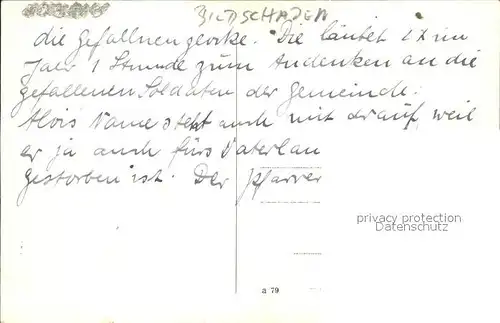 BILDSCHADEN
die Gefallnenglocke. Die läutet 1 X im
Jahr 1 Stunde zum Andenken an die
gefallenen Soldaten der Gemeinde.
Alois Name steht auch mit darauf, weil
er ja auch fürs Vaterlan
gestorben ist. Der Pfarrer
privacy protection
Datenschutz
a 79